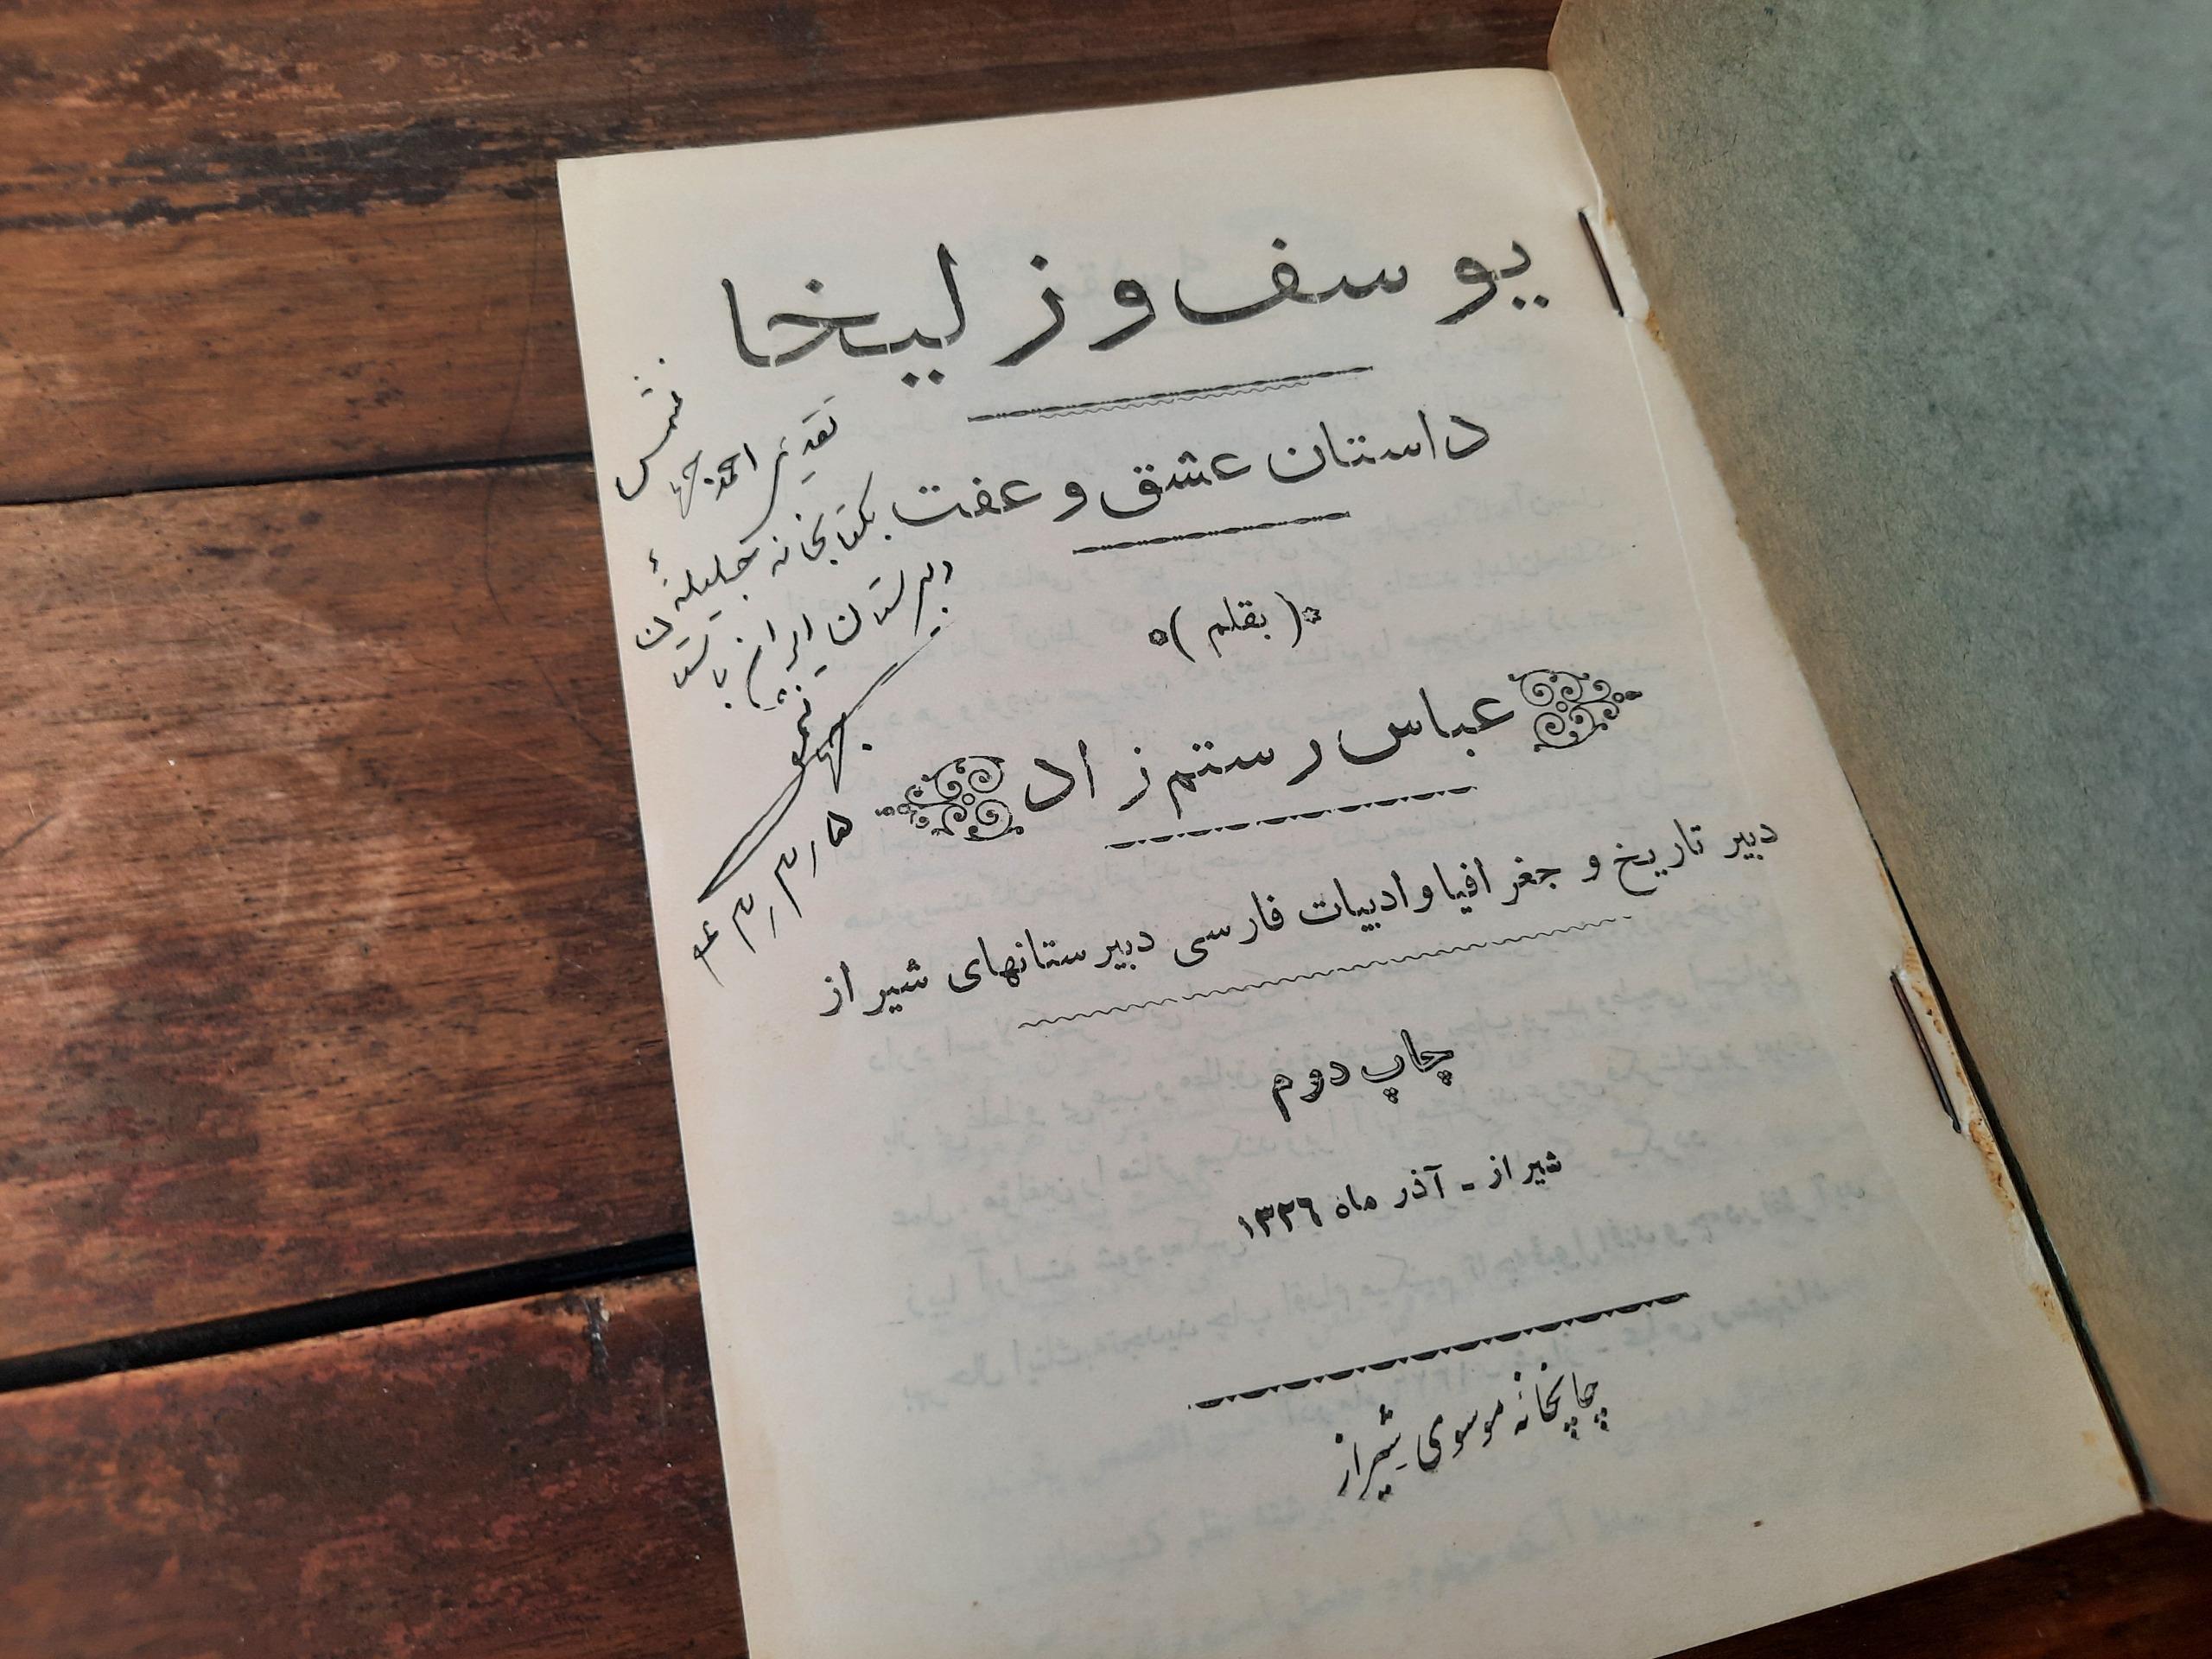 یوسف و زلیخا
داستان عشق و عفت
(بقلم)
عباس رستم زاد
دبیر تاریخ و جغرافیا و ادبیات فارسی دبیرستانهای شیراز
چاپ دوم
شیراز - آذر ماه ۱۳۲۶
چاپخانه موسوی شیراز
تقدیمی احمد
بکتابخانه جلیلهٔ
دبیرستان ایران باستان